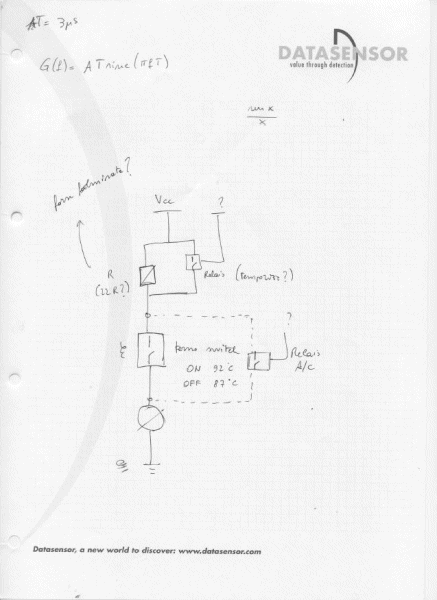 ΔT= 3μs
G(f)= AT sinc(πfT)
DATASENSOR
value through detection
sin x
x
Vcc
?
R
(22R?)
Relais (temporizz?)
termo switch
ON 92°C
OFF 87°C
?
Relais
A/c
Datasensor, a new world to discover: www.datasensor.com